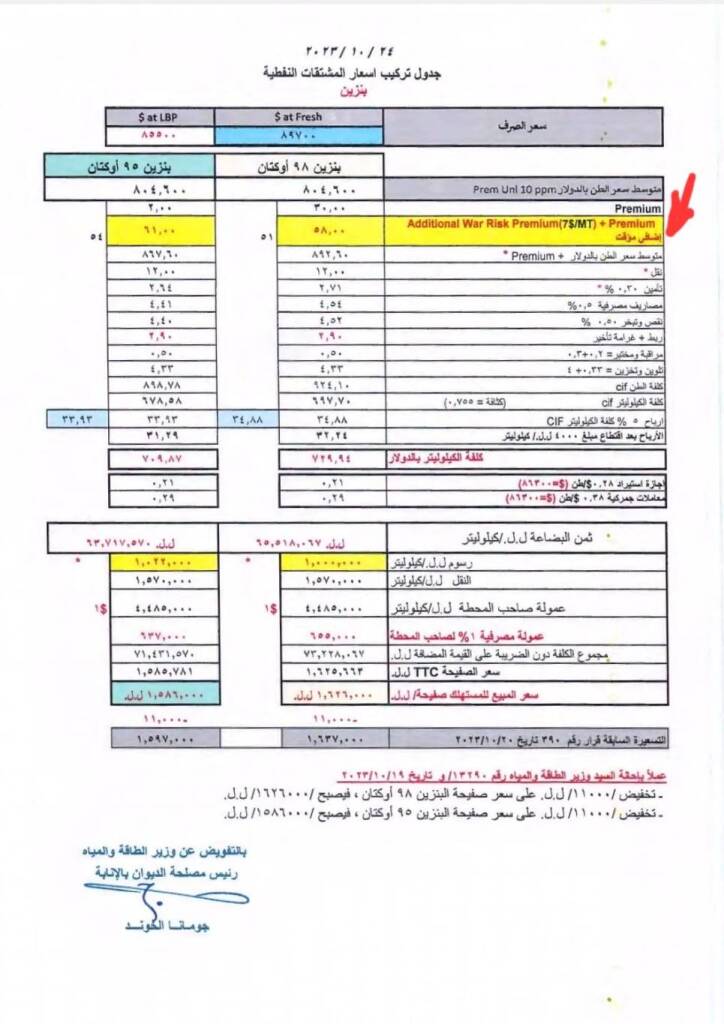 ٢٠٢٣/١٠/٢٤
جدول تركيب اسعار المشتقات النفطية
بنزين
سعر الصرف $ at Fresh $ at LBP
٨٩٧٠٠ ٨٥٥٠٠
بنزين ٩٨ أوكتان بنزين ٩٥ أوكتان
متوسط سعر الطن بالدولار Prem Unl 10 ppm ٨٠٤,٦٠٠ ٨٠٤,٦٠٠
Premium ٣٠,٠٠ ٢,٠٠
Additional War Risk Premium(7$/MT) + Premium إضافي مؤقت ٥٨,٠٠ ٥١ ٦١,٠٠ ٥٤
متوسط سعر الطن بالدولار + Premium * ٨٩٢,٦٠ ٨٦٧,٦٠
نقل * ١٢,٠٠ ١٢,٠٠
تأمين ٠,٣٠ % * ٢,٧١ ٢,٦٤
مصاريف مصرفية ٠,٥% ٤,٥٤ ٤,٤١
نقص وتبخر ٠,٥٠ % ٤,٥٢ ٤,٤٠
ربط + غرامة تأخير ٢,٩٠ ٢,٩٠
مراقبة ومختبر= ٠,٢+٠,٣ ٠,٥٠ ٠,٥٠
تلوين وتخزين= ٠,٣٣+ ٤ ٤,٣٣ ٤,٣٣
كلفة الطن cif ٩٢٤,١٠ ٨٩٨,٧٨
كلفة الكيلوليتر cif (كثافة = ٠,٧٥٥) ٦٩٧,٧٠ ٦٧٨,٥٨
ارباح ٥ % كلفة الكيلوليتر CIF ٣٤,٨٨ ٣٤,٨٨ ٣٣,٩٣ ٣٣,٩٣
الأرباح بعد اقتطاع مبلغ ٤٠٠٠ ل.ل./ كيلوليتر ٣٢,٢٤ ٣١,٢٩
كلفة الكيلوليتر بالدولار ٧٢٩,٩٤ ٧٠٩,٨٧
اجازة استيراد ٠,٢٨ $/طن ($=٨٦٣٠٠) ٠,٢١ ٠,٢١
معاملات جمركية ٠,٣٨ $/طن ($=٨٦٣٠٠) ٠,٢٩ ٠,٢٩
ثمن البضاعة ل.ل./كيلوليتر ل.ل. ٦٥,٥١٨,٠٦٧ ل.ل. ٦٣,٧١٧,٥٧٠
رسوم ل.ل./كيلوليتر ١,٠٠٠,٠٠٠ * ١,٠٢٢,٠٠٠ *
النقل ل.ل/كيلوليتر ١,٥٧٠,٠٠٠ ١,٥٧٠,٠٠٠
عمولة صاحب المحطة ل.ل/كيلوليتر ٤,٤٨٥,٠٠٠ ١$ ٤,٤٨٥,٠٠٠ ١$
عمولة مصرفية ١% لصاحب المحطة ٦٥٥,٠٠٠ ٦٣٧,٠٠٠
مجموع الكلفة دون الضريبة على القيمة المضافة ل.ل. ٧٣,٢٢٨,٠٦٧ ٧١,٤٣١,٥٧٠
سعر الصفيحة TTC ل.ل. ١,٦٢٥,٦٦٣ ١,٥٨٥,٧٨١
سعر المبيع للمستهلك صفيحة/ ل.ل. ١,٦٢٦,٠٠٠ ل.ل. ١,٥٨٦,٠٠٠ ل.ل.
-١١,٠٠٠ -١١,٠٠٠
التسعيرة السابقة قرار رقم ٣٩٠ تاريخ ٢٠٢٣/١٠/٢٠ ١,٦٣٧,٠٠٠ ١,٥٩٧,٠٠٠
عملاً بإحالة السيد وزير الطاقة والمياه رقم ١٣٢٩٠/و تاريخ ٢٠٢٣/١٠/١٩
ـ تخفيض /١١٠٠٠/ ل.ل. على سعر صفيحة البنزين ٩٨ أوكتان ، فيصبح /١٦٢٦٠٠٠/ ل.ل.
ـ تخفيض /١١٠٠٠/ ل.ل. على سعر صفيحة البنزين ٩٥ أوكتان ، فيصبح /١٥٨٦٠٠٠/ ل.ل.
بالتفويض عن وزير الطاقة والمياه
رئيس مصلحة الديوان بالإنابة
جومانا الخوند